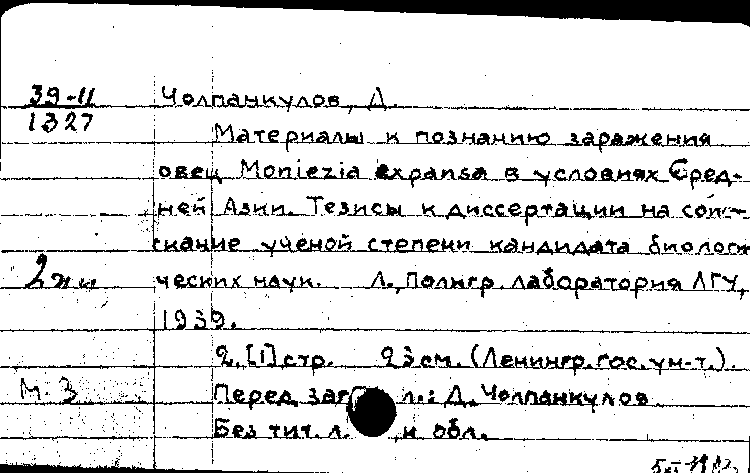 39-11
1327
Чолпанкулов, Д.
Материалы к познанию заражения
овец Moniezia expansa в условиях Сред-
ней Азии. Тезисы к диссертации на сои-
скание ученой степени кандидата биологи
ческих наук. Л., Полигр. лаборатория ЛГУ,
1939.
2, [1] стр. 23 см. (Ленингр. гос. ун-т.).
Перед л.: Д. Чолпанкулов.
Без тит. л. и обл.
2 
М. З